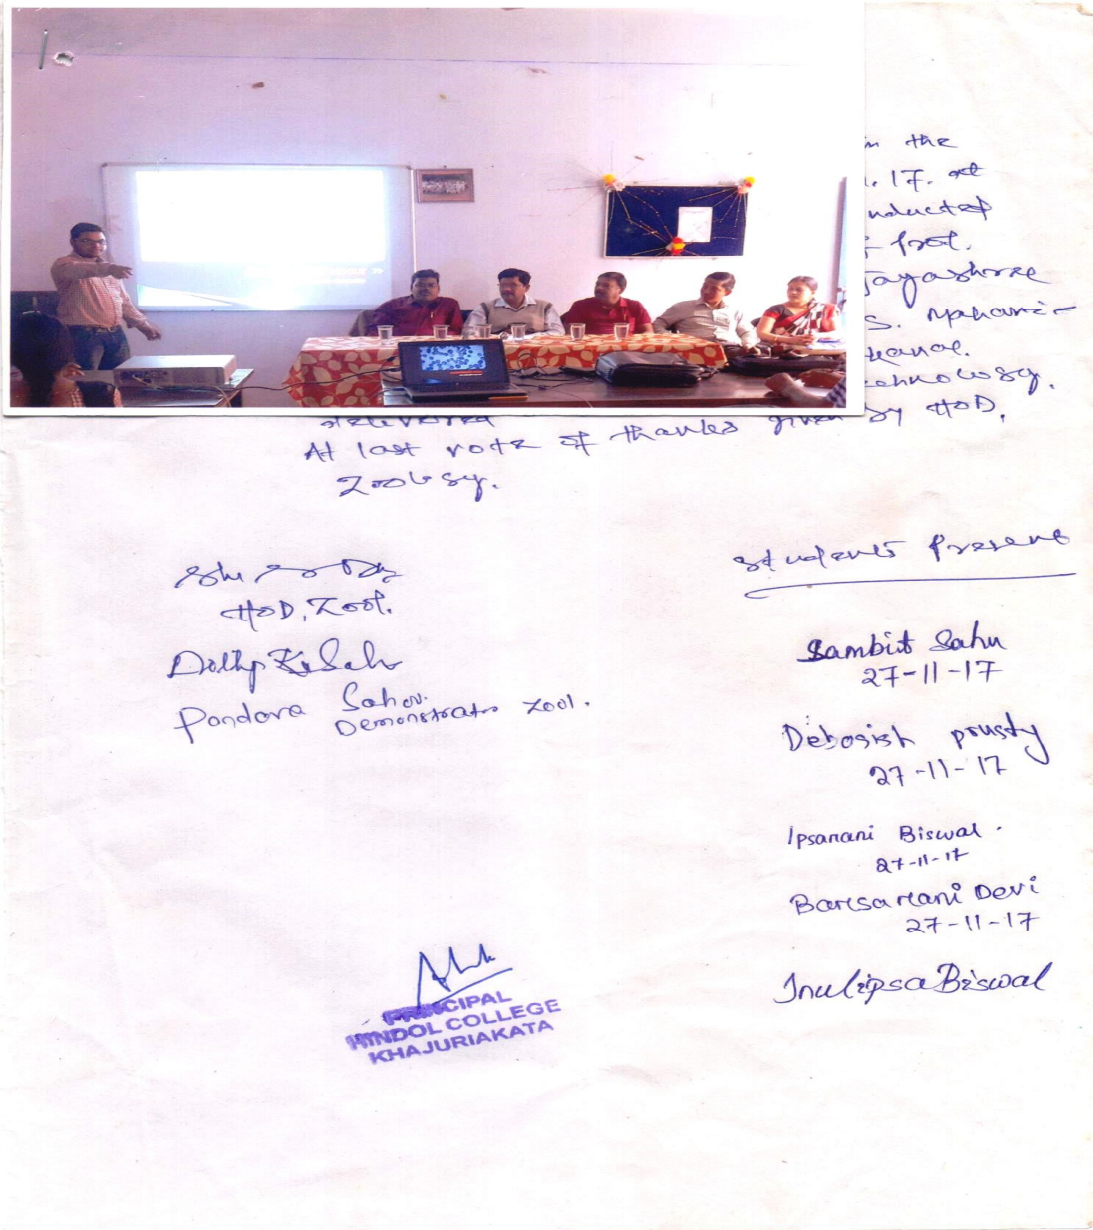 in the
.17. at
nducted
f prof.
Jayashree
S. Mahavir
kanal.
echnology.
delivered
At last vote of thanks given by HOD,
Zoology.
HOD, Zool.
Pandava Sahoo.
Demonstrator Zool.
Students Present
Sambit Sahu
27-11-17
Debasish prusty
27-11-17
Ipsarani Biswal.
27-11-17
Barsarani Devi
27-11-17
Biswal
PRINCIPAL
HINDOL COLLEGE
KHAJURIAKATA